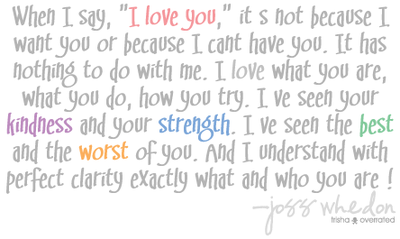 When I say, "I love you," it s not because I
want you or because I cant have you. It has
nothing to do with me. I love what you are,
what you do, how you try. I ve seen your
kindness and your strength. I ve seen the best
and the worst of you. And I understand with
perfect clarity exactly what and who you are !
—joss whedon
trisha overrated